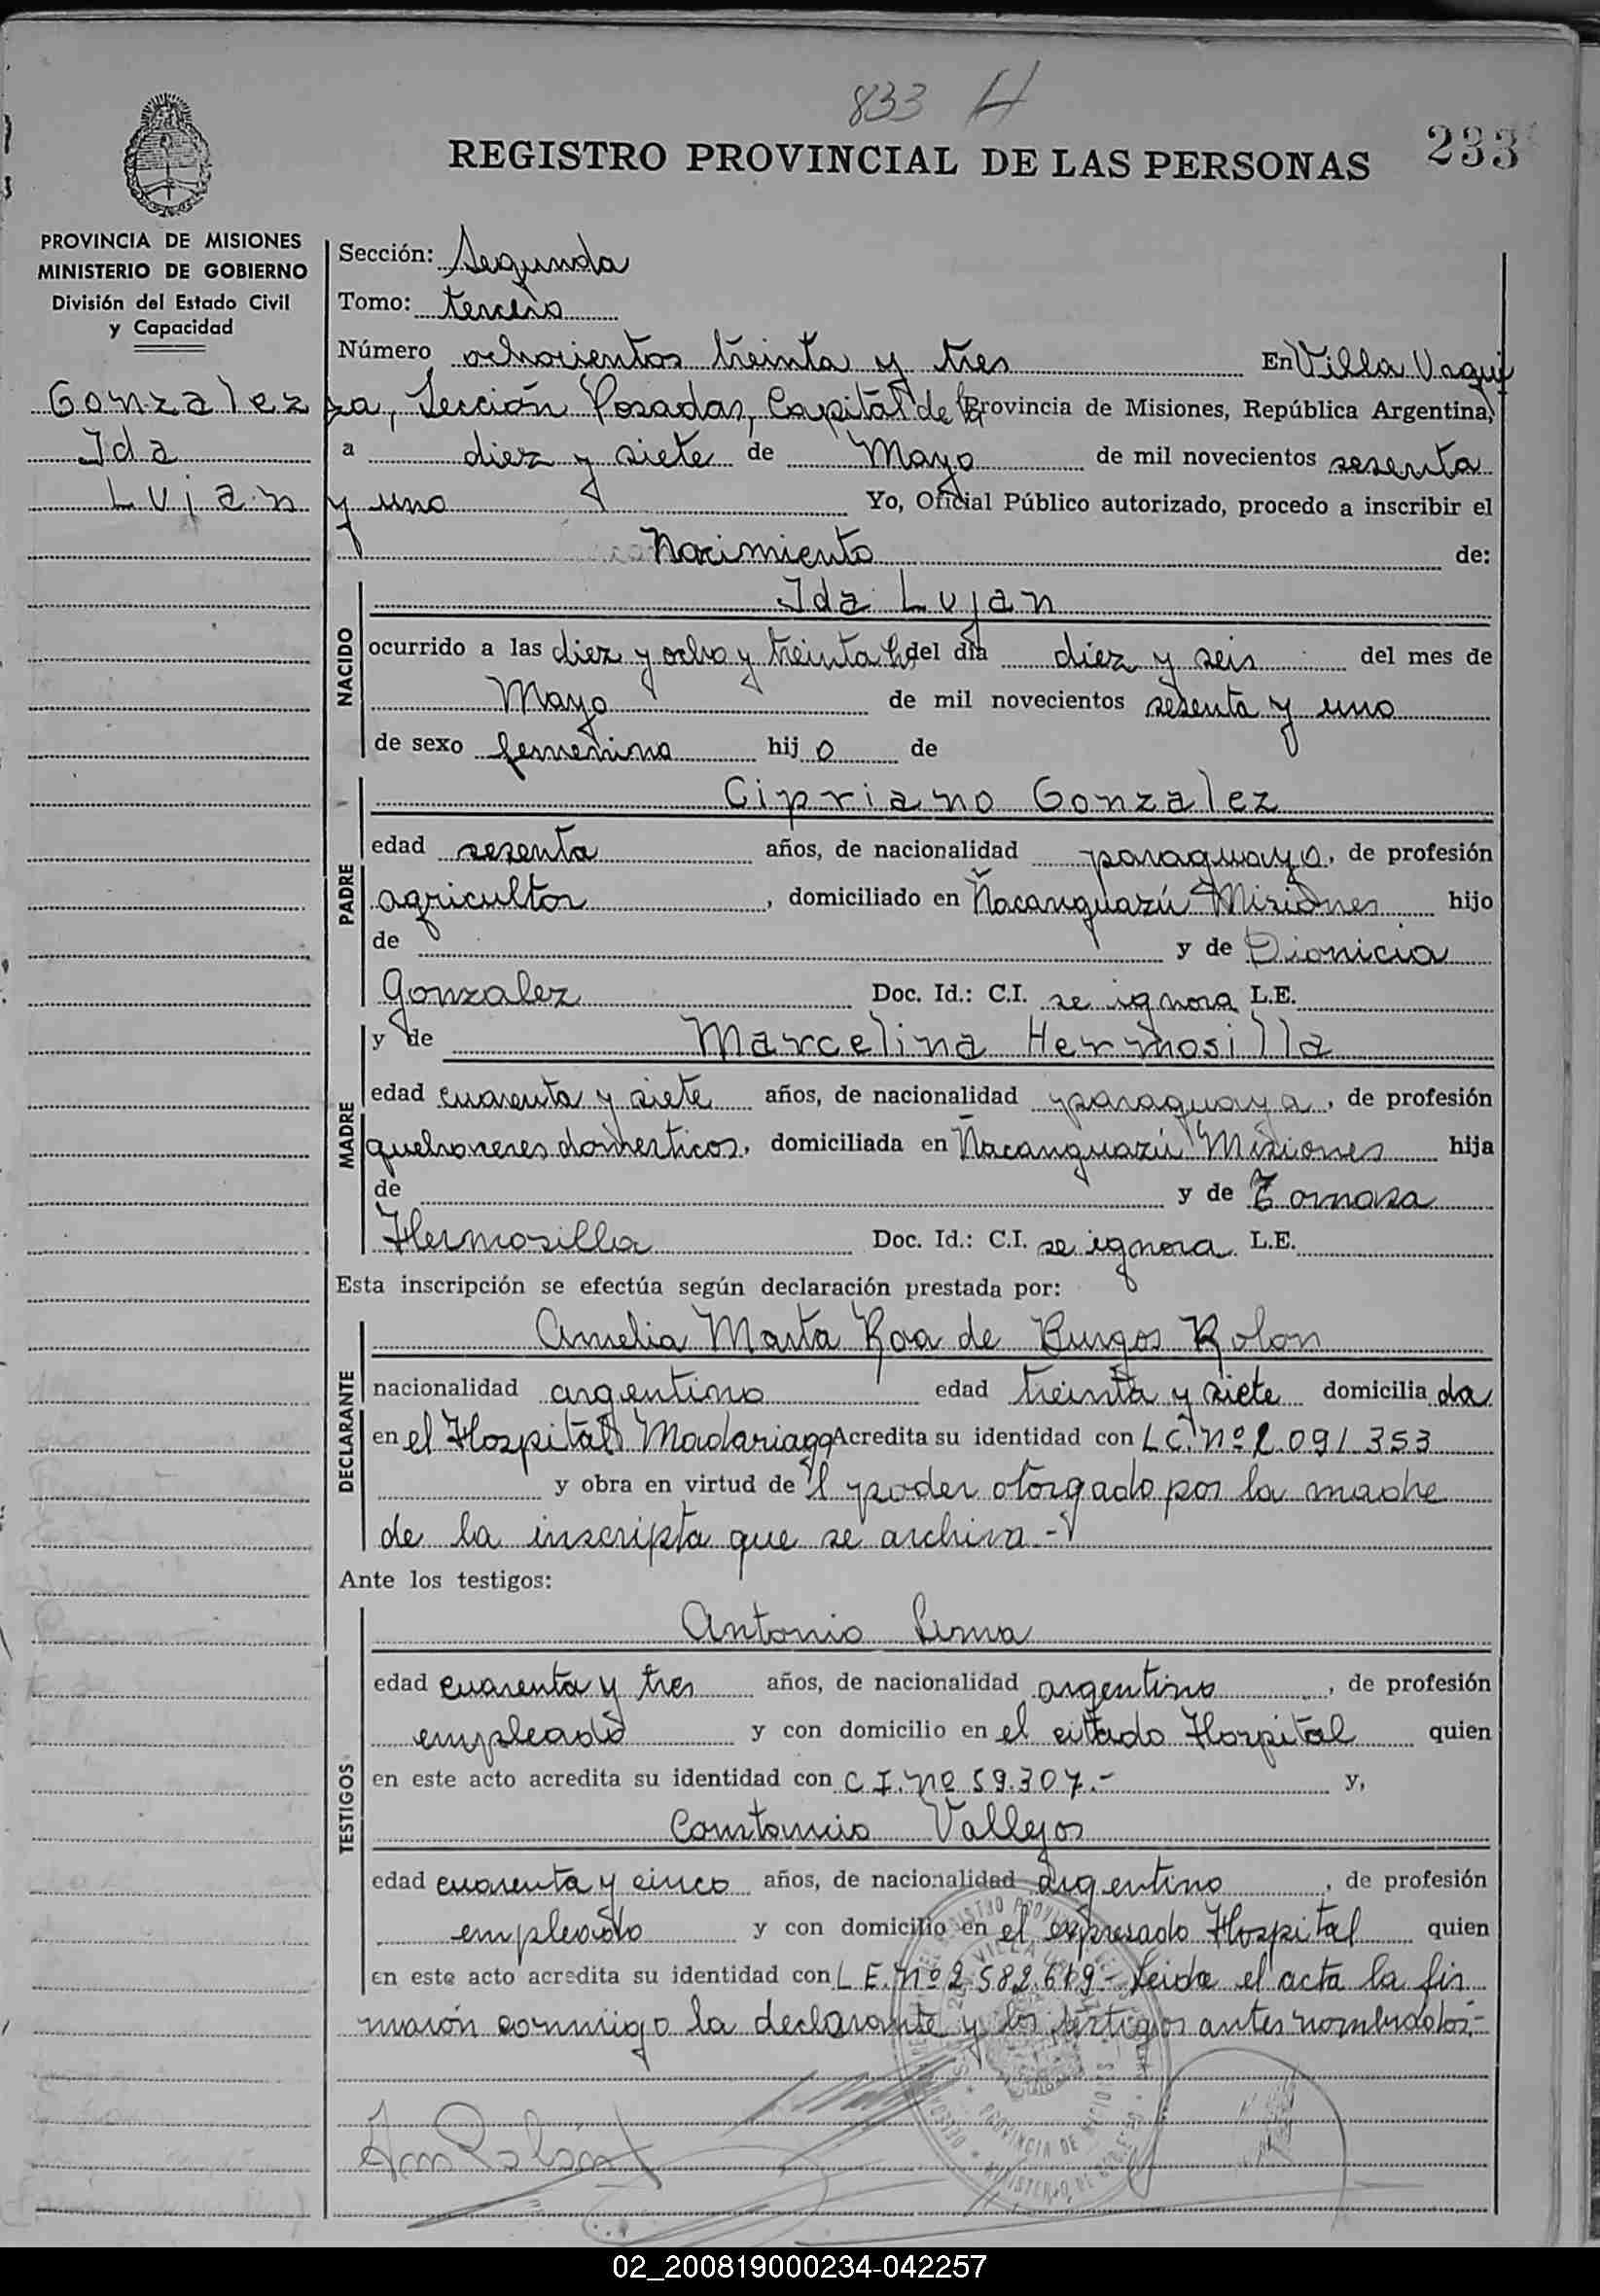 833 H
REGISTRO PROVINCIAL DE LAS PERSONAS 233
PROVINCIA DE MISIONES
MINISTERIO DE GOBIERNO
División del Estado Civil
y Capacidad
Gonzalez
Ida
Lujan
Sección: Segunda
Tomo: tercero
Número ochocientos treinta y tres En Villa Urqui
za, Sección Posadas, Capital de la Provincia de Misiones, República Argentina,
a diez y siete de Mayo de mil novecientos sesenta
y uno Yo, Oficial Público autorizado, procedo a inscribir el
Nacimiento de:
NACIDO
Ida Lujan
ocurrido a las diez y ocho y treinta h. del día diez y seis del mes de
Mayo de mil novecientos sesenta y uno
de sexo femenino hij o de
PADRE
Cipriano Gonzalez
edad sesenta años, de nacionalidad paraguayo, de profesión
agricultor, domiciliado en Ñacanguazú Misiones hijo
de y de Dionicia
Gonzalez Doc. Id.: C.I. se ignora L.E.
MADRE
y de Marcelina Hermosilla
edad cuarenta y siete años, de nacionalidad paraguaya, de profesión
quehaceres domesticos, domiciliada en Ñacanguazú Misiones hija
de y de Tomasa
Hermosilla Doc. Id.: C.I. se ignora L.E.
Esta inscripción se efectúa según declaración prestada por:
DECLARANTE
Amelia Marta Roa de Burgos Rolon
nacionalidad argentino edad treinta y siete domicilia da
en el Hospital Madariaga Acredita su identidad con L C. Nº 2.091.353
y obra en virtud de l poder otorgado por la madre
de la inscripta que se archiva.-
Ante los testigos:
TESTIGOS
Antonio Lima
edad cuarenta y tres años, de nacionalidad argentino, de profesión
empleado y con domicilio en el citado Hospital quien
en este acto acredita su identidad con C I. Nº 59.307.- y,
Constancio Vallejos
edad cuarenta y cinco años, de nacionalidad argentino, de profesión
empleado y con domicilio en el expresado Hospital quien
en este acto acredita su identidad con L E. Nº 2.582.619- Leida el acta la fir
maron conmigo la declarante y los testigos antes nombrados.-
PROVINCIA DE MISIONES
02_200819000234-042257